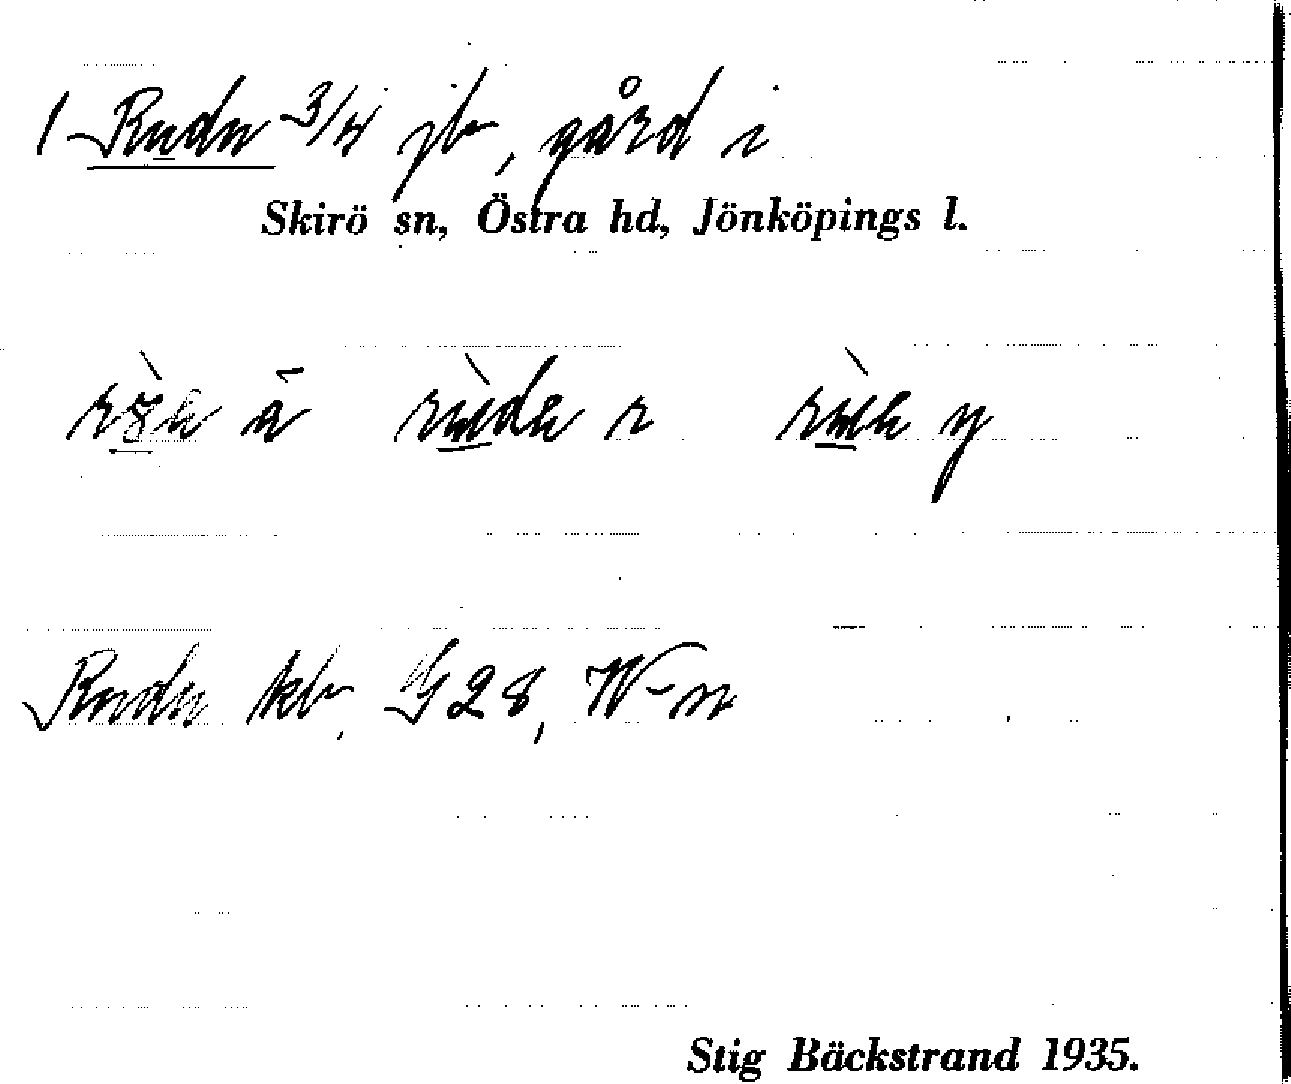 1 Rudu 3/4 jb, gård i
Skirö sn, Östra hd, Jönköpings l.
ä rùdu r y
Rudu kb, G28, W-n
Stig Bäckstrand 1935.